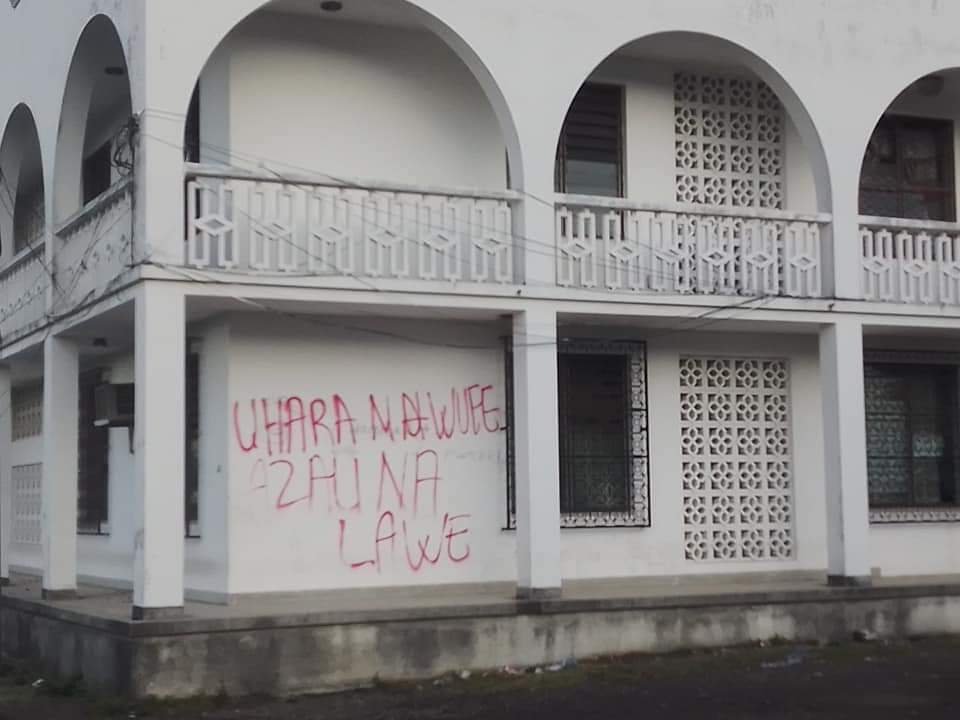 UHARA NAWUFE
AZALI NA
LAWE